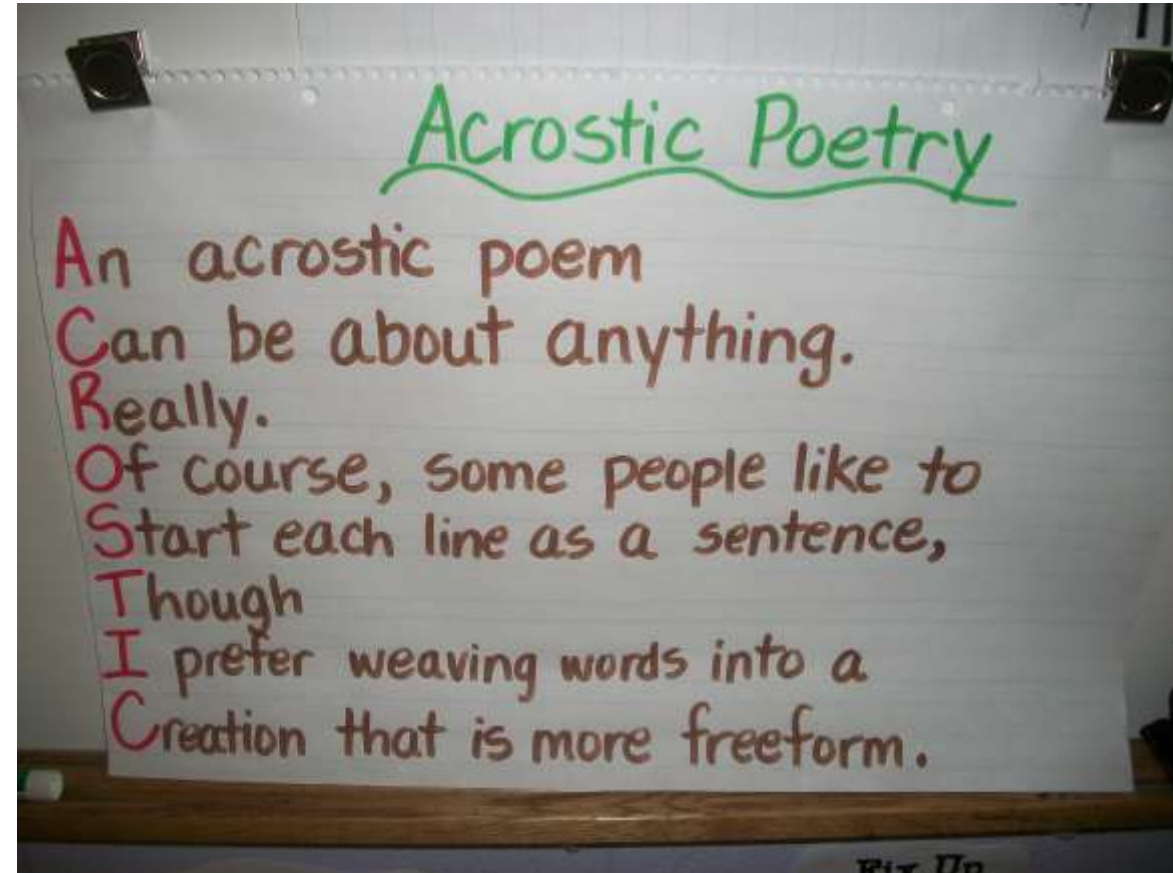 Acrostic Poetry
An acrostic poem
Can be about anything.
Really.
Of course, some people like to
Start each line as a sentence,
Though
I prefer weaving words into a
Creation that is more freeform.
Fix Up